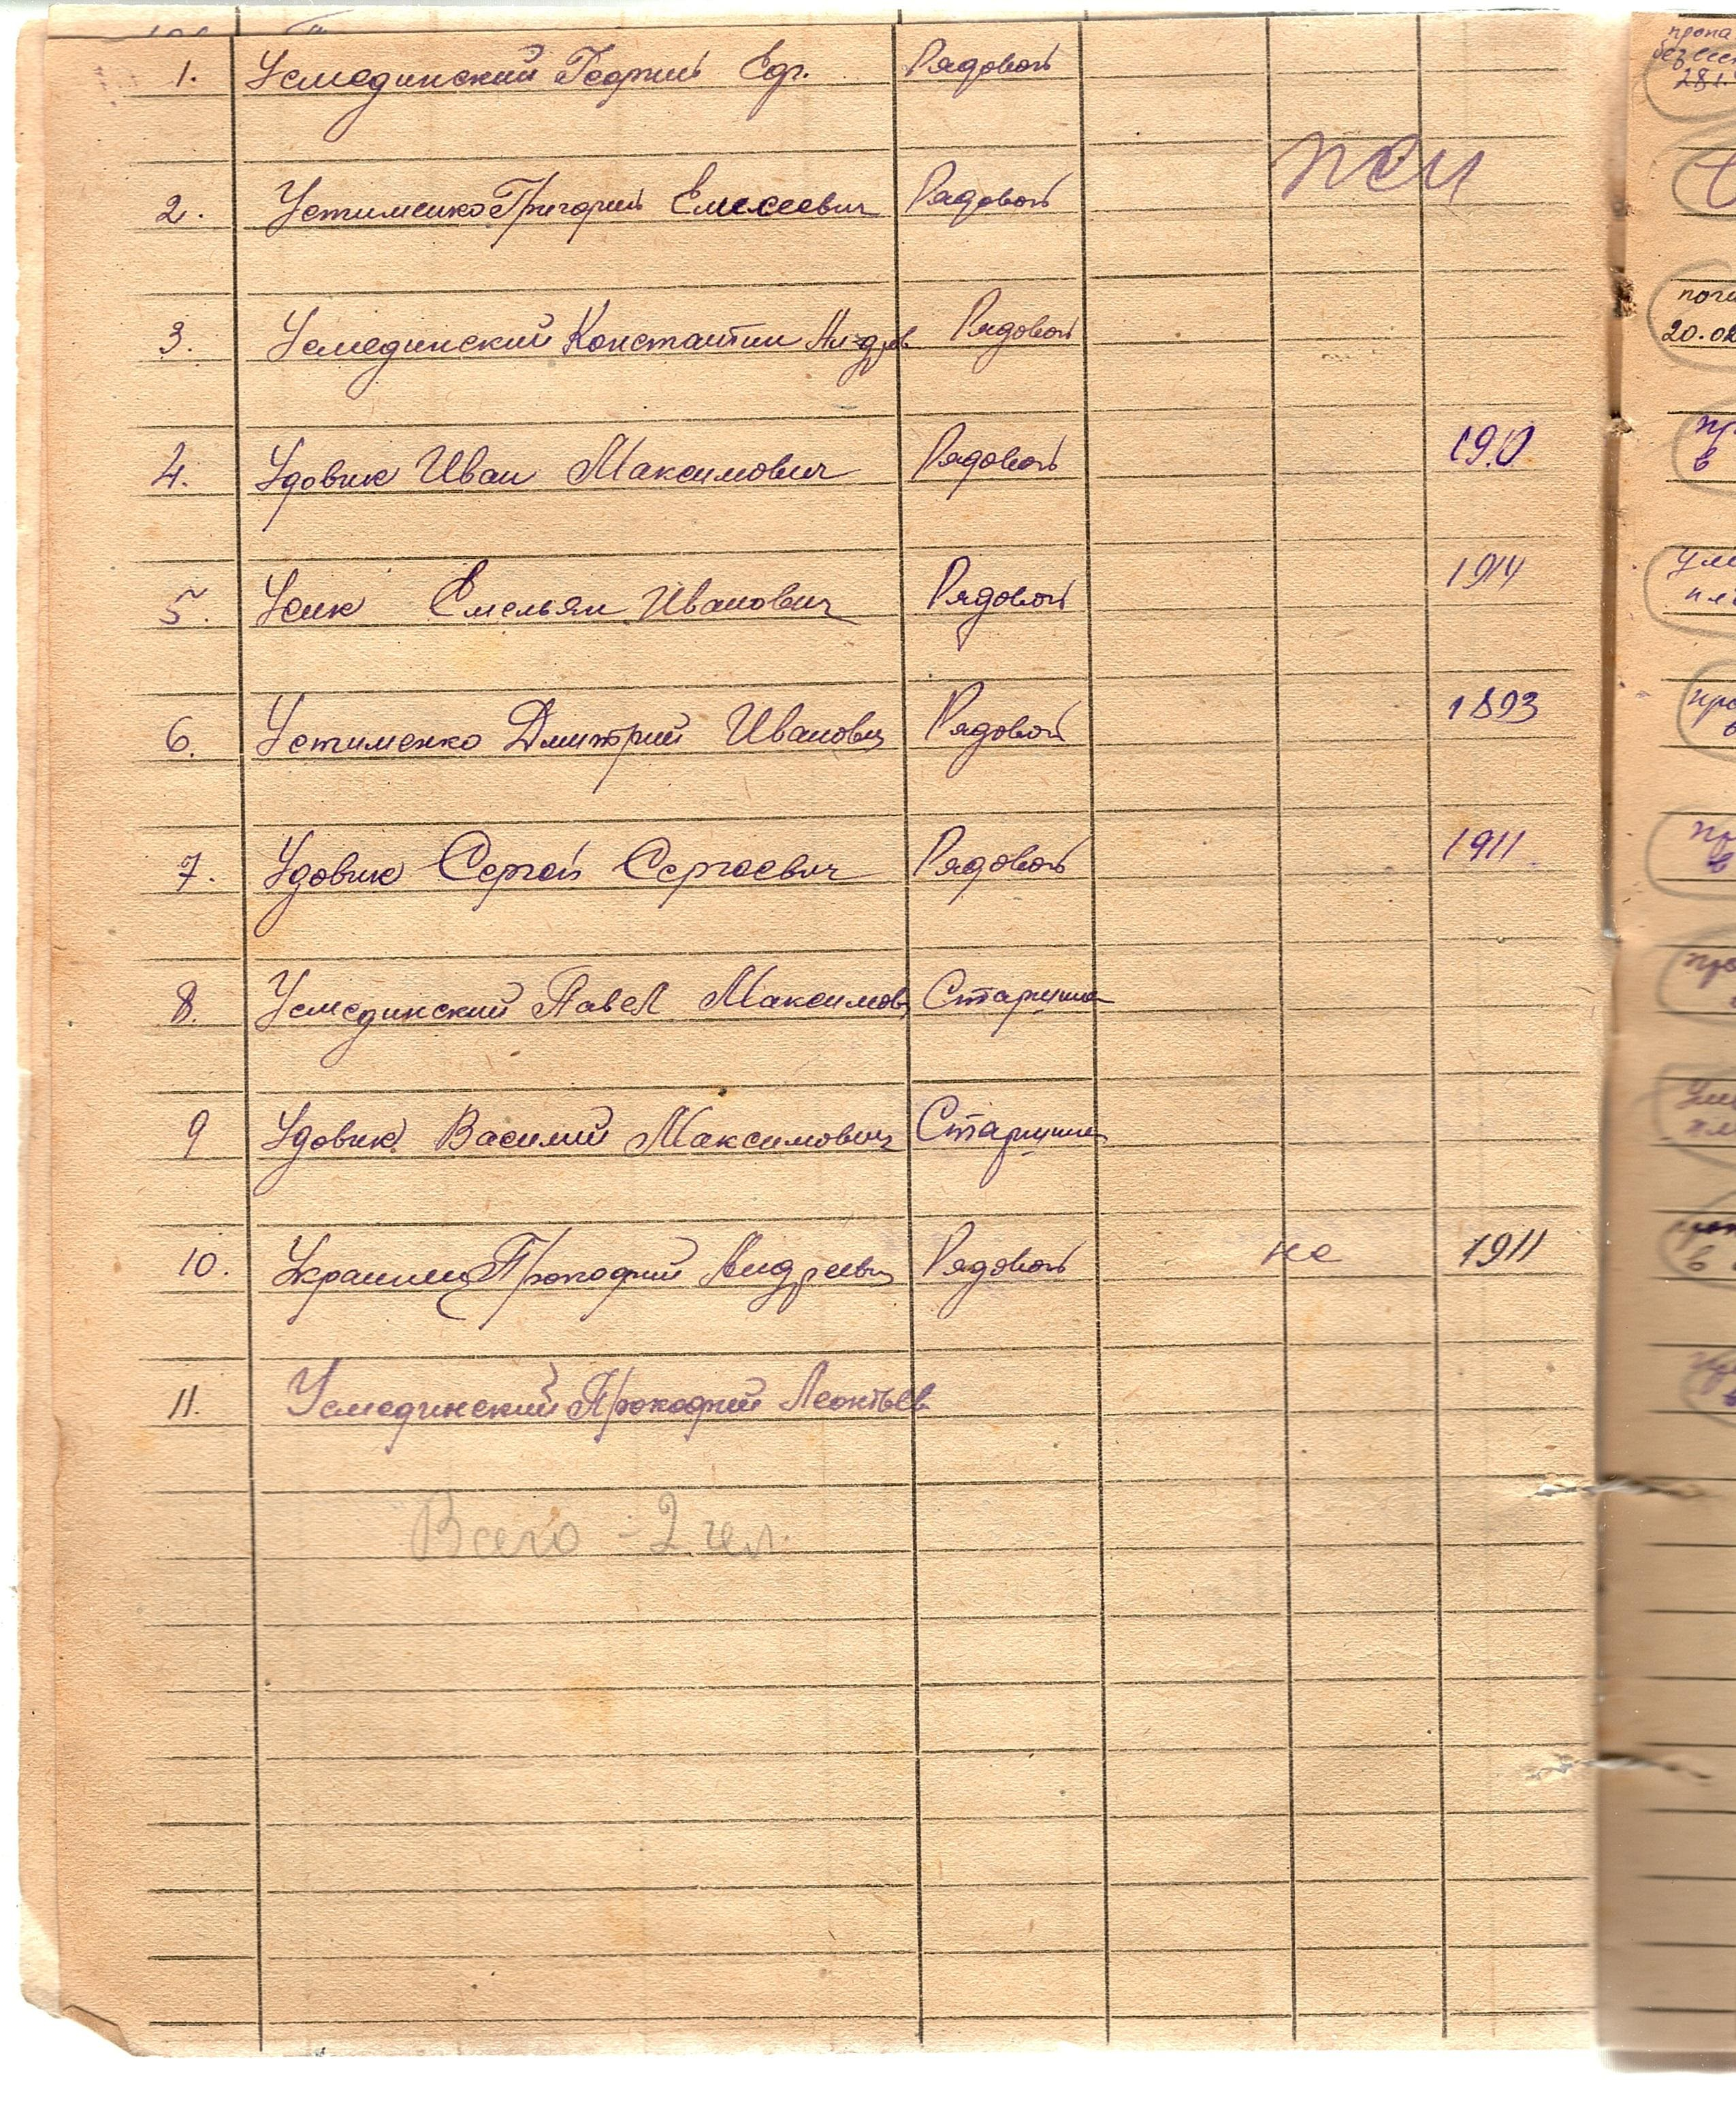 1. Усмединский Георгий Едр. Рядовой
2. Устименко Григорий Елисеевич Рядовой
3. Усмединский Константин Андрв Рядовой
4. Удовик Иван Максимович Рядовой 1910
5. Усик Емельян Иванович Рядовой 1914
6. Устименко Дмитрий Иванович Рядовой 1893
7. Удовик Сергей Сергеевич Рядовой 1911
8. Усмединский Павел Максимов Старшина
9 Удовик Василий Максимович Старшина
10. Украинец Прокофий Андреевич Рядовой не 1911
11. Усмединский Прокофий Леонтьев
Всего - 2 чел.